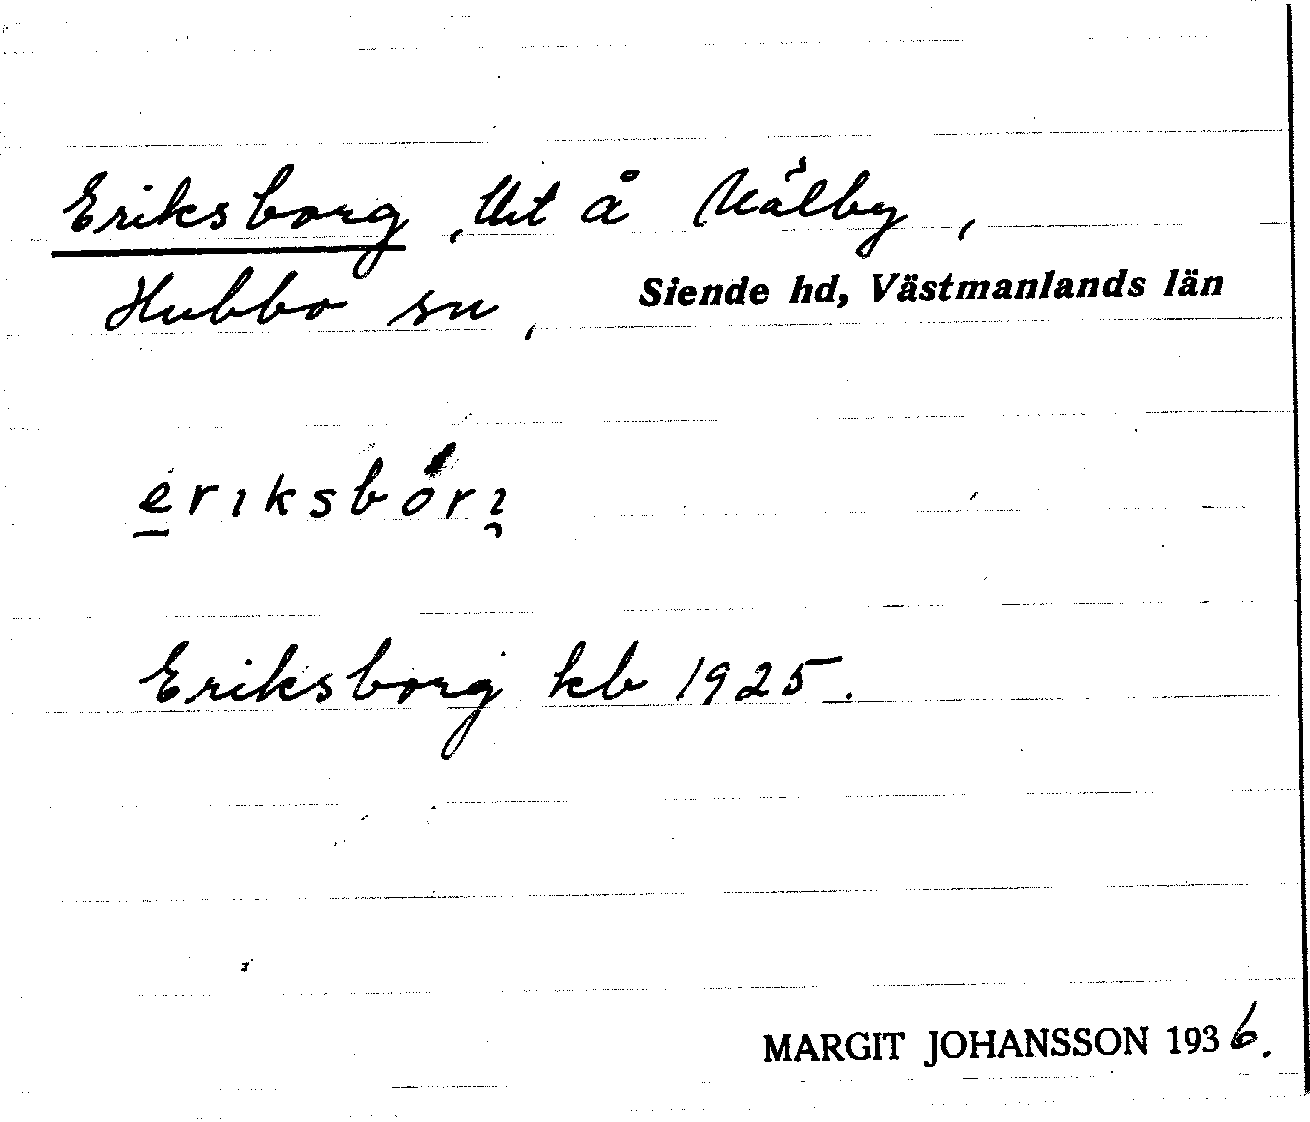 Eriksborg, lht å Målby,
Hubbo sn, Siende hd, Västmanlands län
eriksbòrı̯
Eriksborg kb 1925.
MARGIT JOHANSSON 1936.